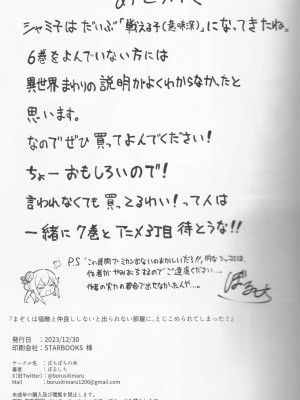 あとがき
シャミ子はだいぶ「戦える子(意味深)」になってきたね。
6巻をよんでいない方には
異世界まわりの説明がよくわからなかったと
思います。
なのでぜひ買ってよんでください!
ちょーおもしろいので!
言われなくても買ってるわい!って人は
一緒に7巻とアニメ3丁目待とうな!!
P.S "この展開でミカン出ないのおかしいだろ!!"的なつっこみは、
作者がやみおちするのでご遠慮ください…。
作者の実力の都合で出せなかったんや…。
ぼるしち
『まぞくは宿敵と仲良ししないと出られない部屋に、とじこめられてしまった!』
発行日 :2023/12/30
印刷会社:STARBOOKS 様
サークル名 :ぼちぼちの木
著者名 :ぼるしち
X(旧Twitter):@borusitimaru
Mail :borusitimaru1206@gmail.com